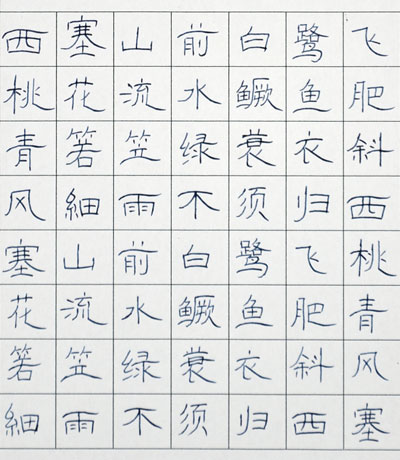 西塞山前白鹭飞
桃花流水鳜鱼肥
青箬笠绿蓑衣斜
风細雨不须归西
塞山前白鹭飞桃
花流水鳜鱼肥青
箬笠绿蓑衣斜风
細雨不须归西塞